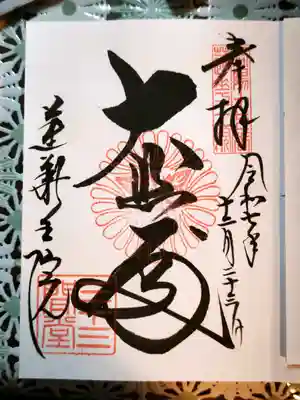 奉拝
令和七年
十二月二十三日
大悲殿
蓮華王院
三十三間堂